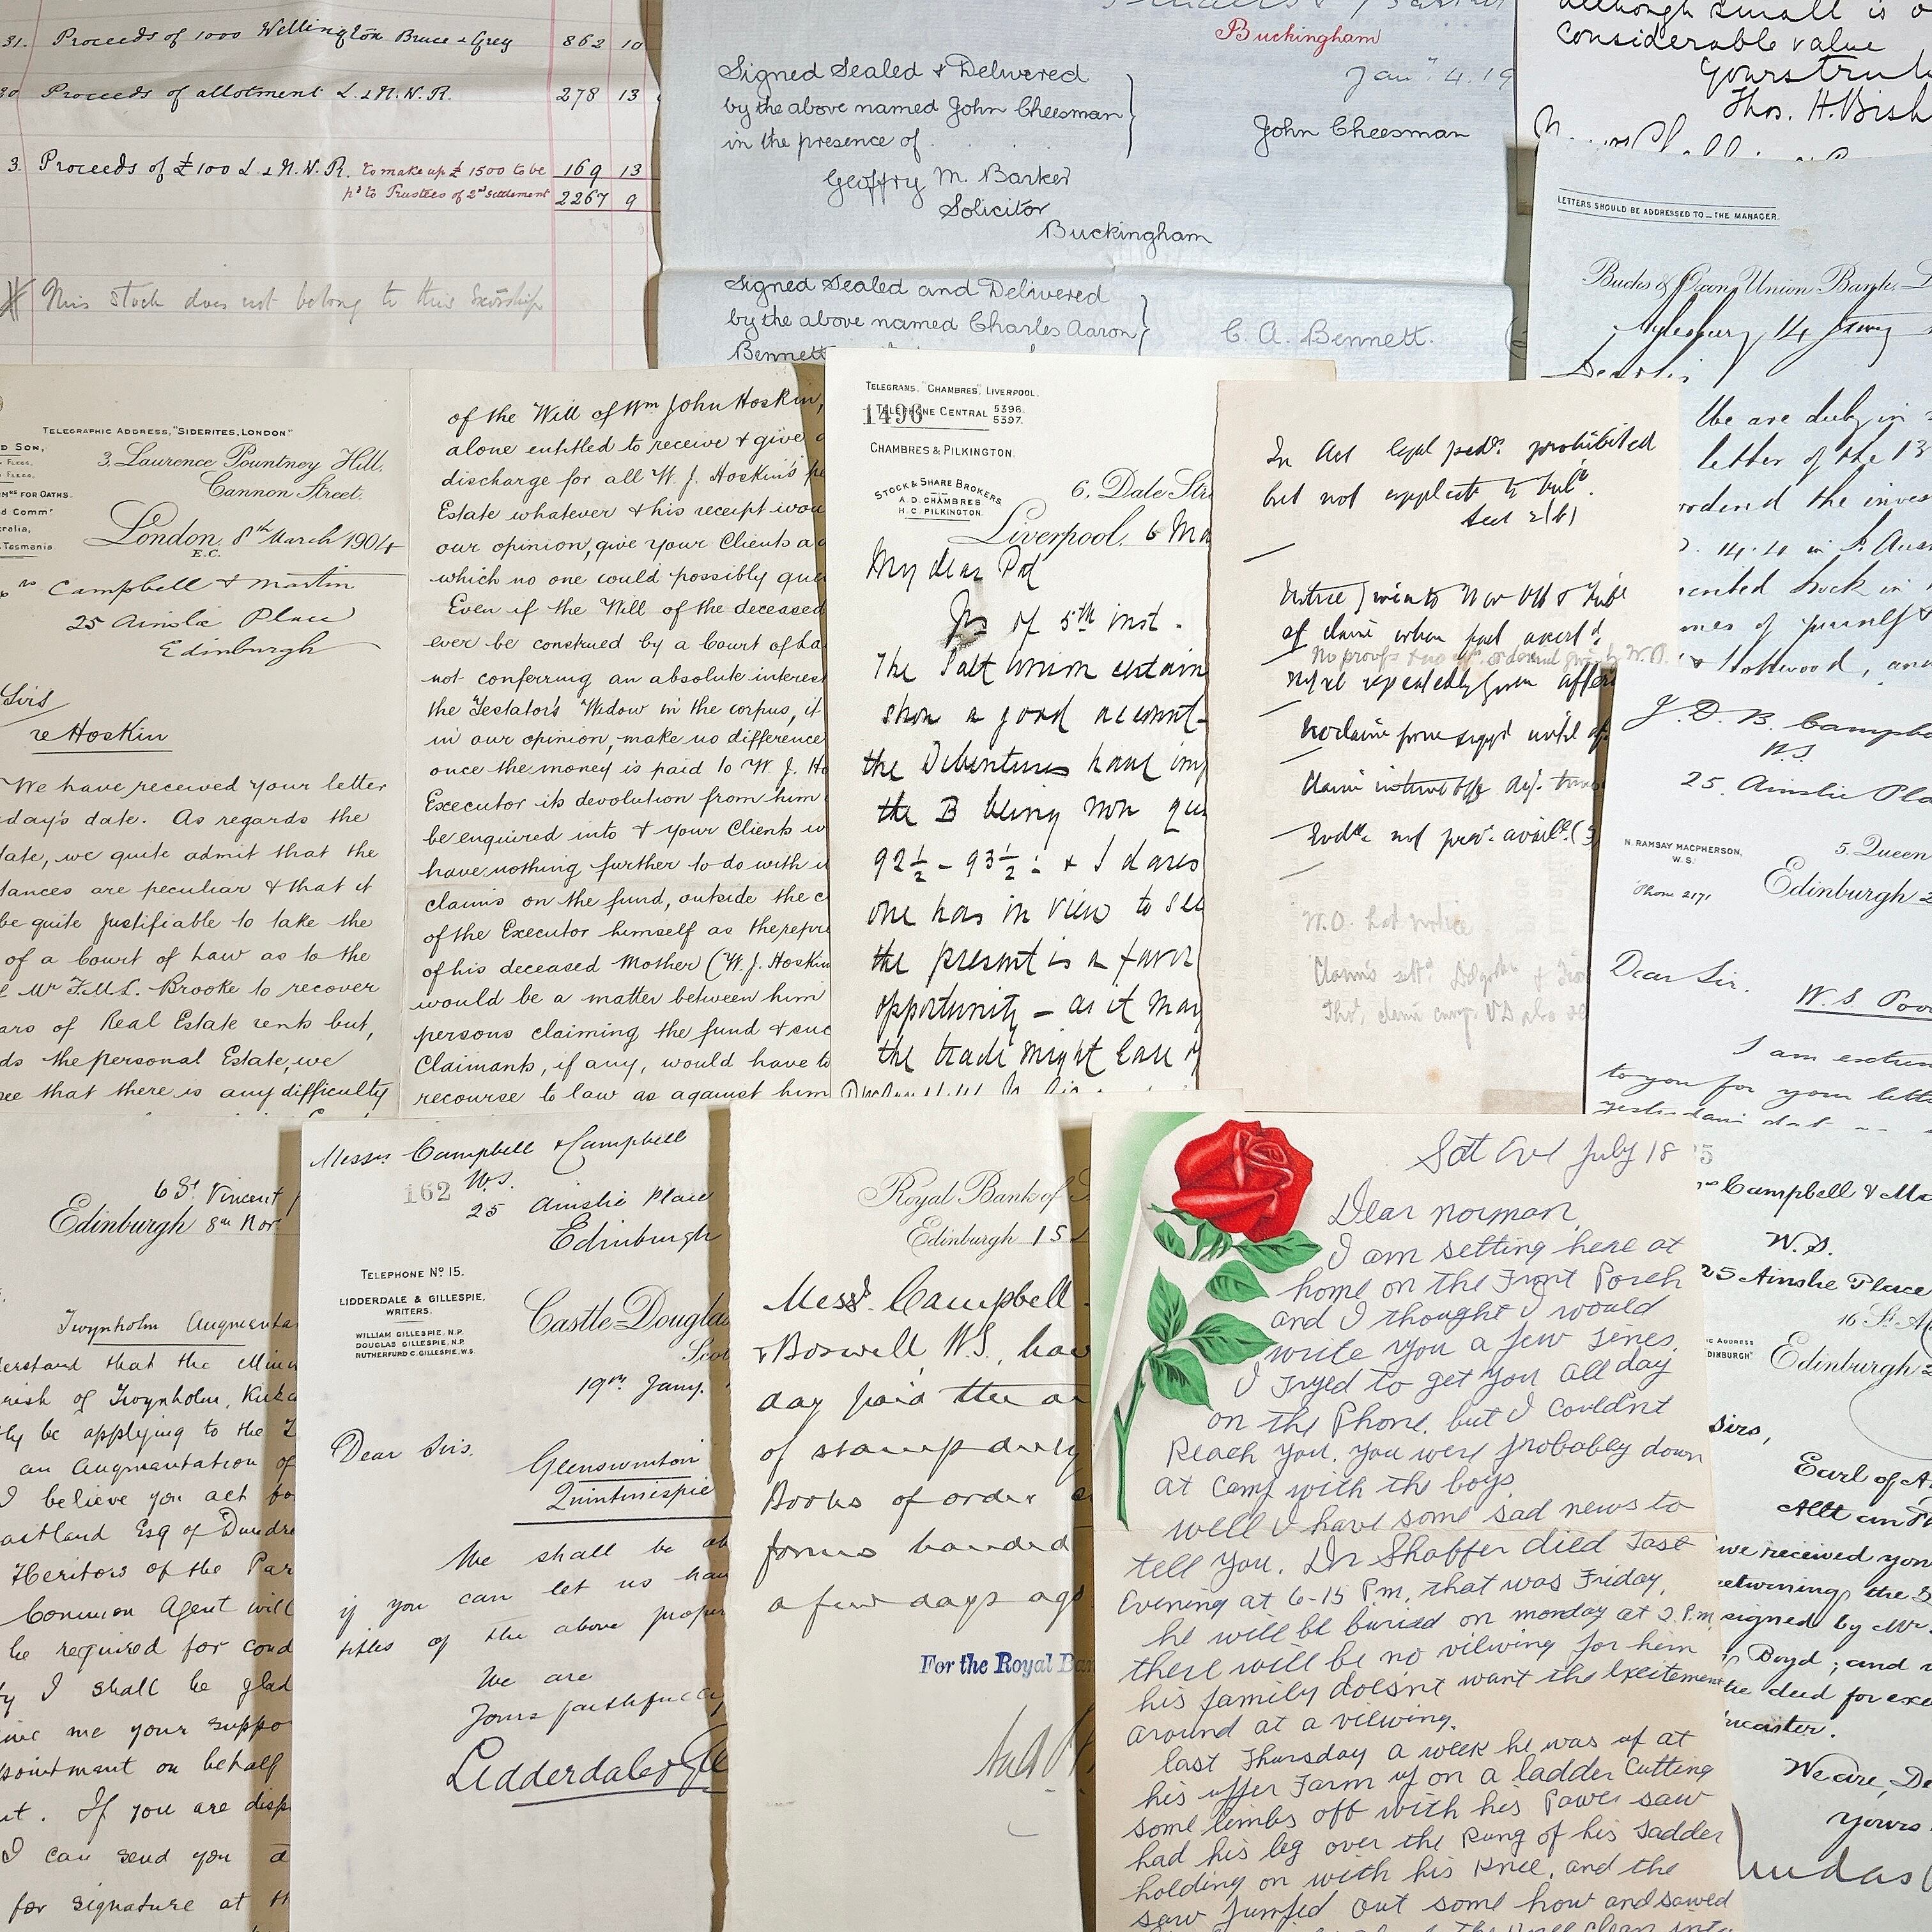 31. Proceeds of 1000 Wellington Bruce & Grey 862 10
30 Proceeds of allotment L. & N. N. R. 278 13
3. Proceeds of £100 L. & N. N. R. to make up £1500 to be 169 13
pd to Trustees of 2nd Settlement 2267 9
This Stock does not belong to this
Buckingham
Jany. 4. 19
Signed Sealed & Delivered
by the above named John Cheesman
in the presence of
John Cheesman
Geoffry M. Barker
Solicitor
Buckingham
Signed Sealed and Delivered
by the above named Charles Aaron
Bennett
C. A. Bennett.
although small is o
Considerable value
Yours truly
Thos. H. Bish
LETTERS SHOULD BE ADDRESSED TO – THE MANAGER.
Bucks & Oxon Union Bank. L
Aylesbury 14
Dear Sir,
We are duly in
letter of the 13
the inves
14.4.0 in S. Aus
stock in
mes of yourself &
wood, and
TELEGRAPHIC ADDRESS, "SIDERITES, LONDON."
D SON,
MRS FOR OATHS.
D COMMR
TRALIA,
TASMANIA
3, Laurence Pountney Hill,
Cannon Street,
London, 8th March 1904
E.C.
Campbell & Martin
25 Ainslie Place
Edinburgh
Sirs
re Hoskin
We have received your letter
day's date. As regards the
tate, we quite admit that the
tances are peculiar & that it
be quite justifiable to take the
of a Court of Law as to the
Mr F.M.L. Brooke to recover
ars of Real Estate rents but,
ds the personal Estate, we
see that there is any difficulty
of the Will of Wm John Hoskin,
alone entitled to receive & give
discharge for all W. J. Hoskin's pe
Estate whatever & his receipt wou
our opinion, give your Clients a
which no one could possibly que
Even if the Will of the deceased
ever be construed by a Court of La
not conferring an absolute interest
the Testator's Widow in the corpus, it
in our opinion, make no difference
once the money is paid to W. J. Ho
Executor its devolution from him
be enquired into & your Clients w
have nothing further to do with i
claims on the fund, outside the c
of the Executor himself as the repre
of his deceased Mother (W. J. Hoskin
would be a matter between him
persons claiming the fund & suc
Claimants, if any, would have to
recourse to law as against him
TELEGRAMS, "CHAMBRES" LIVERPOOL.
1496
TELEPHONE CENTRAL 5396.
5397.
CHAMBRES & PILKINGTON.
STOCK & SHARE BROKERS.
A. D. CHAMBRES
H. C. PILKINGTON.
6, Dale Stre
Liverpool, 6 Ma
My dear
of 5th inst.
The Salt Union certain
show a good account
the Debentures have imp
the B being now qu
92½ – 93½ & I dares
one has in view to see
the present is a favor
opportunity – as it may
the trade might ease
In Act legal prohibited
but not applicable to
Sect 2(b)
of claim when
repeatedly given
No claim
W.O. had notice
J. D. B. Campbe
W.S.
25, Ainslie Pla
N. RAMSAY MACPHERSON,
W.S.
'Phone 2171
5, Queen
Edinburgh 2
Dear Sir.
W. S.
I am extrem
to you for your lette
6 St Vincent
Edinburgh 8th Nov
Twynholm Augmenta
erstand that the Minis
rish of Twynholm, Kirkc
tly be applying to the
an Augmentation of
I believe you act for
aitland Esq of Dundre
Heritors of the Par
Common Agent will
be required for cond
I shall be glad
ive me your suppo
ointment on behalf
ut. If you are disp
I can send you a
for signature at th
Messrs Campbell & Campbell
W.S.
162
25 Ainslie Place
Edinburgh
TELEPHONE No 15.
LIDDERDALE & GILLESPIE,
WRITERS.
WILLIAM GILLESPIE, N.P.
DOUGLAS GILLESPIE, N.P.
RUTHERFURD C. GILLESPIE, W.S.
Castle-Douglas
Scot
19th Jany.
Dear Sirs.
Glenswinton
Quintinespie
We shall be ob
if you can let us hav
titles of the above proper
We are
Yours faithfully
Lidderdale & Gill
Royal Bank of
Edinburgh 15
Messrs. Campbell
& Boswell W.S. hav
day paid the a
of stamp duty
Books of order
forms handed
a few days ago
For the Royal Ban
Sat Eve July 18
Dear Norman,
I am setting here at
home on the Front Porch
and I thought I would
write you a few Lines.
I Tryed to get you all day
on the Phone. but I couldnt
Reach you. you were probably down
at Camp with the boys.
Well I have some sad news to
tell you. Dr Shaffer died Last
Evening at 6-15 Pm. that was Friday,
he will be buried on monday at 2. P.m.
there will be no viewing for him
his family doesnt want the Excitement
around at a viewing.
last Thursday a week he was up at
his upper Farm up on a ladder Cutting
some limbs off with his Power saw
had his leg over the Rung of his Ladder
holding on with his Knee, and the
saw Jumped out some how and sawed
Campbell & Ma
W.S.
25 Ainslie Place
16 St A
ADDRESS
EDINBURGH"
Edinburgh 2
Sirs,
Earl of A
we received you
returning the S
signed by Mr
Boyd; and
the deed for exe
ncaster.
We are, De
Yours